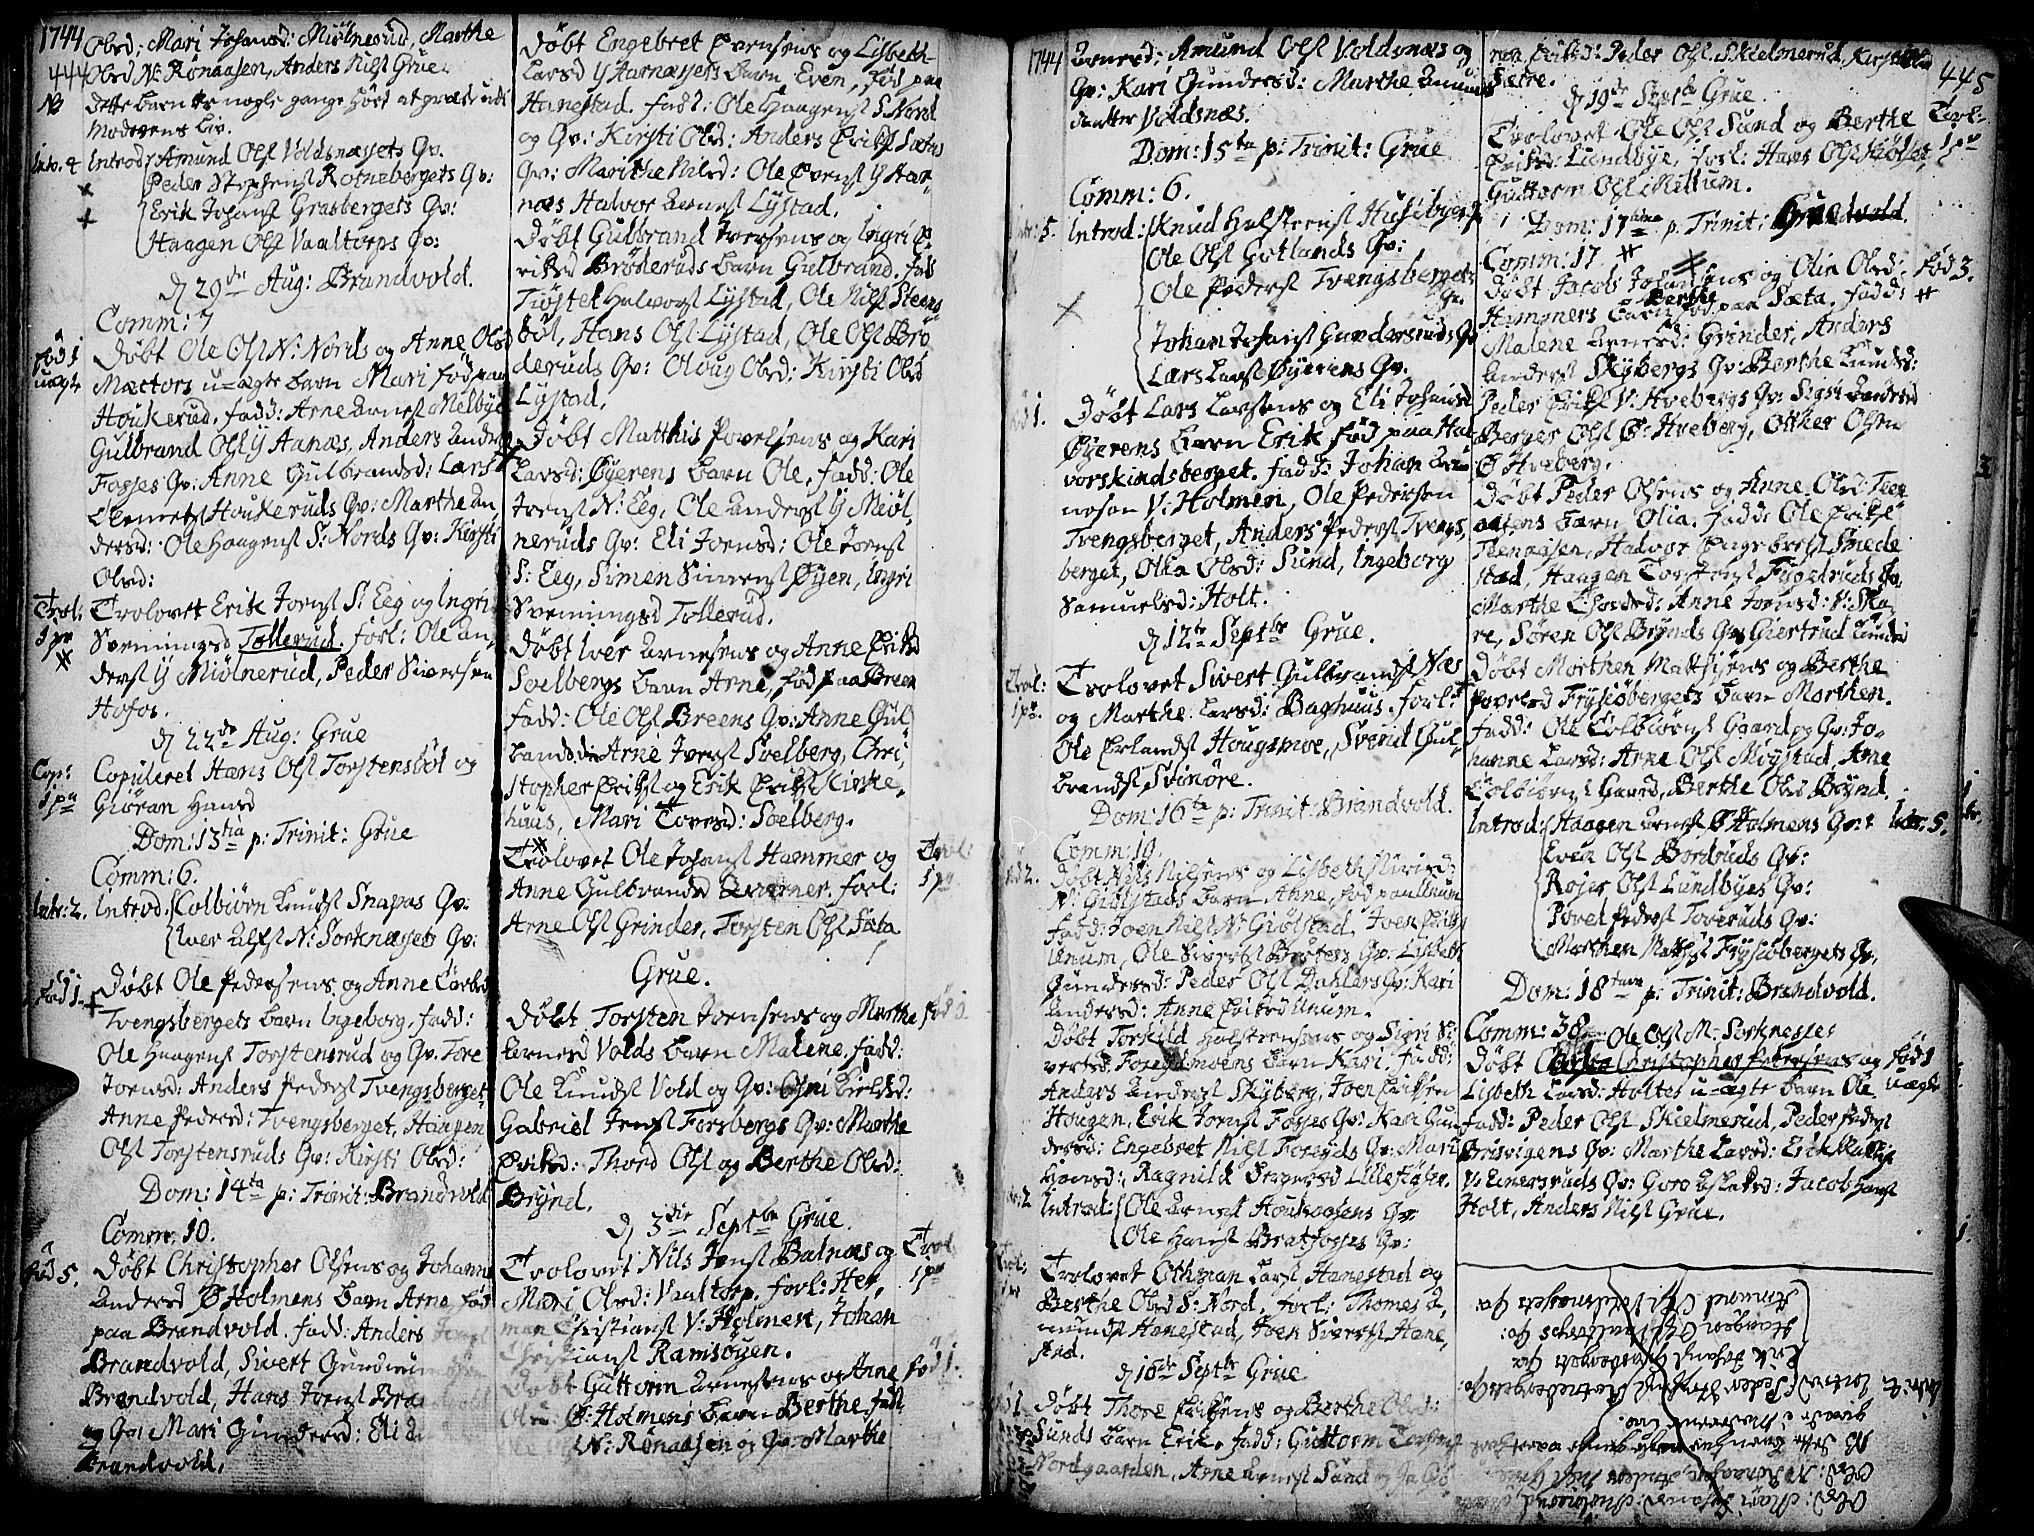 1744
444
Olsd: Mari Johansd: Miölnerud, Marthe
Olsd N: Rönaasen, Anders Nilsf Grue.
NB
dette barn er nogle gange hört at græde udi
Moderens Liv.
Intr. 4
Introd: Amund Olsf Voldsnæssets Qv.
Peder Stephensf Rotnebergets Qv:
Erik Johansf Grasbergets Qv:
Haagen Olsf Vaaltorps Qv:
d 29de Aug: Brandvold.
Comm: 7
Föd 1
uægt
Döbt Ole Olsf N: Nords og Anne Olsd
Mæctors u=ægte barn Mari föd paa
Houkerud. fadd: Arne Arnesf Melbye
Gulbrand Olsf Y Aanæs, Anders Anders
Fosses Qv: Anne Gulbrandsd: Lars
Clemetsf Houkeruds Qv: Marthe An
dersd: Ole Haagensf S: Nords Qv: Kirsti
Olsd:
Trol:
1 pr
Trolovet Erik Jornsf S: Eeg og Ingri
Svenningsd Tollerud. forl: Ole An
dersf Y Miölnerud, Peder Siversen
Hofos.
d 22de Aug: Grue
Cop:
1 pr
Copuleret Hans Olsf Torstensböl og
Giöran Hansd
Dom: 13tia p: Trinit: Grue
Comm: 6.
Intr: 2.
Introd: Colbiörn Knudsf Snapas Qv.
Iver Alfsf N: Sorknæssets Qv:
Föd 1.
Döbt Ole Pedersens og Anne Torbersd
Tvengsbergets barn Ingeborg. fadd:
Ole Haagensf Torstensrud og Qv. Tore
Joensd: Anders Pedersf Tvengsberget
Anne Pedersd: Tvengsberget, Haagen
Olsf Torstensruds Qv: Kirsti Olsd:
Dom: 14ta p: Trinit: Brandvold
Comm. 10.
Föd 5.
Döbt Christopher Olsens og Johanne
Andersd Ø Holmens barn Arne föd
paa Brandvold. fadd: Anders
Brandvold, Sivert Gudmun
Brandvold, Hans Joensf Bra
og Qv: Mari Gundersd: Eli
Brandvold,
Döbt Engebret Evensens og Lisbeth
Larsd Y Harnæssets barn Even, föd paa
Hanestad. fadd: Ole Haagensf S Nord
og Qv: Kirsti Olsd: Anders Eriksf Sætas
Qv: Marithe Nilsd: Ole Evensf Y Har
næs Halvor Arnesf Lystad.
Döbt Gulbrand Iversens og Ingri E
riksd Bröderuds barn Gulbrand. fadd
Tiöstel Halvorsf Lystad, Ole Nilsf Steens
böl, Hans Olsf Lystad, Ole Olsf Brö
deruds Qv: Oloug Olsd: Kirsti Olsd
Lystad.
Döbt Matthis Povelsens og Kari
Larsd: Øyerens barn Ole, fadd: Ole
Jornsf N: Eeg, Ole Andersf Y Miöl
neruds Qv: Eli Jornsd: Ole Jornsf
S: Eeg, Simen Simensf Øyen, Ingri
Svenningsd Tollerud.
Döbt Iver Arnesens og Anne Eriksd
Soelbergs barn Arne, föd paa Breen
fadd: Ole Olsf Breens Qv: Anne Gul
brandsd: Arne Iversf Soelberg, Chri
stopher Eriksf og Erik Eriksf Kirke,
huus, Mari Toresd: Soelberg.
Trolovet Ole Johansf Hammer og
Trol:
1 pr
Anne Gulbrandsd Qværner. forl:
Arne Olsf Grinder, Torsten Olsf Sæta
Grue.
Döbt Torsten Joensens og Marthe
Föd 1.
Arnesd Volds barn Malene, fadd:
Ole Knudsf Vold og Qv: Gni Eriksd:
Gabriel Jensf Forsbergs Qv: Marthe
Eriksd: Thord Olsf og Berthe Olsd:
Brynd.
d 3die Septbr Grue.
Trolovet Nils Jensf Balnæs og
Trol
1 pr
Mari Olsd: Vaaltorp. forl: Her,
man Christiansf V: Holmen, Johan
Christiansf Ramsöyen.
Döbt Guttorm Arnesens og Anne
Föd 1.
Olsd Ø: Holmens barn Berthe. fadd
N: Rönaasen og Qv: Marthe
1744
Arnesd: Amund Olsf Voldsnæs og
Qv: Kari Gundersd: Marthe Amunds
datter Voldsnæs.
Dom: 15ta p: Trinit: Grue
Comm: 6.
Intr: 5.
Introd: Knud Halstensf Husebyes Qv
Ole Olsf Gotlands Qv:
Ole Pedersf Tvengsbergets
Qv.
Johan Johansf Gundersruds Qv
Lars Larsf Øyerens Qv.
Föd 1.
Döbt Lars Larsens og Eli Johansd
Øyerens barn Erik föd paa Hal
vorskindsberget. fadd: Johan Arn
nesen V: Holmen, Ole Pedersen
Tvengsberget, Anders Pedersf Tvengs,
berget, Olia Olsd: Sund, Ingeborg
Samuelsd: Holt.
d 12te Septbr Grue.
Trol:
1 pr.
Trolovet Sivert Gulbrandsf Næs
og Marthe Larsd: Baghuus. forl:
Ole Erlandsf Hougsmoe, Svend Gul,
brandsf Svinöre.
Dom: 16ta p: Trinit: Brandvold.
Comm: 19.
Föd 2.
Döbt Nils Nilsens og Lisbeth Siversd:
N: Giölstads barn Anne, föd paa Unum
fadd: Joen Nilsf N: Giölstad, Joen Eriksf
Unum, Ole Siversf Børstens Qv: Lisbeth
Gundersd: Peder Olsf Dahlers Qv: Kari
Andersd: Anne Eriksd Unum.
Döbt Torkild Halstensens og Sigri Si
vertsd. Fossemoens barn Kari. fadd:
Anders Andersf Skyberg, Joen Eriksen
Hougen, Erik Jornsf Fosses Qv: Kari Gun
dersd: Engebret Nilsf Toreruds Qv: Mari
Hansd: Ragnild Ingersd Lillefløten.
Intr: 2
Introd: Ole Arnesf Houkaasens Qv.
Ole Hansf Bratfosses Qv:
Trol:
1 pr
Trolovet Othman Larsf Hanestad og
Berthe Olsd S: Nord, forl: Thomes A,
mundsf Hanestad, Joen Siversf Hane,
stad.
d 16de Septbr Grue
Döbt Thore Eriksens og Berthe Olsd:
Sunds barn Erik, fadd: Guttorm Torsensf
Nordgaarden, Arne Arnesf Sund og
445
Eriksd: Peder Olsf Skielmerud, Kirsti
Sætre.
d 19de Septbr Grue.
Trolovet Ole Olsf Sund og Berthe
Trol:
1 pr
Eriksd: Lundbye, forl: Hans Olsf
Guttorm Olsf Mellum.
Dom: 17tima p: Trinit: Grue
Comm: 17
Döbt Jacob Johansens og Olia Olsd:
Föd 3.
Hammers barn Berthe föd paa Sæta. fadd:
Malene Arnesd: Grinder, Anders
Andersf Skybergs Qv: Berthe Knudsd:
Peder Eriksf V: Hvebergs Qv: Sigri Andersd
Berger Olsf Ø: Hveberg, Otther Olsen
Ø Hveberg.
Döbt Peder Olsens og Anne Olsd: Teen
aasens barn Olia. fadd: Ole Eriksf
Teenaasen, Halvor Engebretsf Smede
stad, Haagen Torstensf Fygedruds Qv.
Marthe Thordsd: Anne Jornsd: V: Ska,
re, Sören Olsf Brynds Qv: Giertrud Knudsd
Döbt Morthen Matthisens og Berthe
Povelsd Frysiöbergets barn Morthen.
fadd: Ole Colbiörnsf Gaard og Qv: Jo,
hanne Larsd: Arne Olsf Moystad, Arne
Colbiörnsf Gaard, Berthe Olsd Brynd.
Introd: Haagen Arnesf Ø Holmens Qv:
Intr. 5.
Even Olsf Bordruds Qv:
Rojer Olsf Lundbyes Qv:
Povel Pedersf Toveruds Qv:
Morthen Matthisf Frysiöbergets Qv.
Dom: 18tava p: Trinit: Brandvold.
Comm: 38
Ole Olsf M: Sorknesses
Döbt Christopher Petersens og
Föd 1
uægte
Lisbeth Larsd: Holtes u=ægte barn Ole
fadd: Peder Olsf Skielmerud, Peder Pedersf
Brisvigens Qv: Marthe Larsd: Erik
V: Emersruds Qv: Goro Aslaksd: Jacob Hansf
Holt, Anders Nilsf Grue.